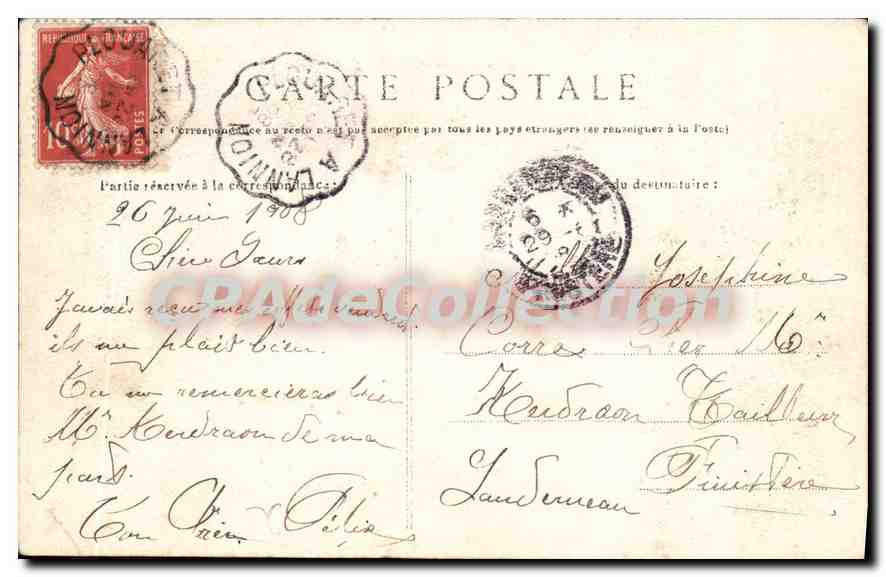 REPUBLIQUE FRANCAISE
10
POSTES
PLOUARET
LANNION
A LANNION
CARTE POSTALE
Correspondance au recto n'est pas acceptée par tous les pays étrangers (se renseigner à la Poste)
Partie réservée à la correspondance :
du destinataire :
26 Juin 1908
J'avais reçu
ils me plait bien.
Tu me remercieras bien
Mr. Kerdraon de ma
part.
Ton Félix
Joséphine
Corre chez Mr
Kerdraon Tailleur
Landerneau Finistère
CPAdeCollection